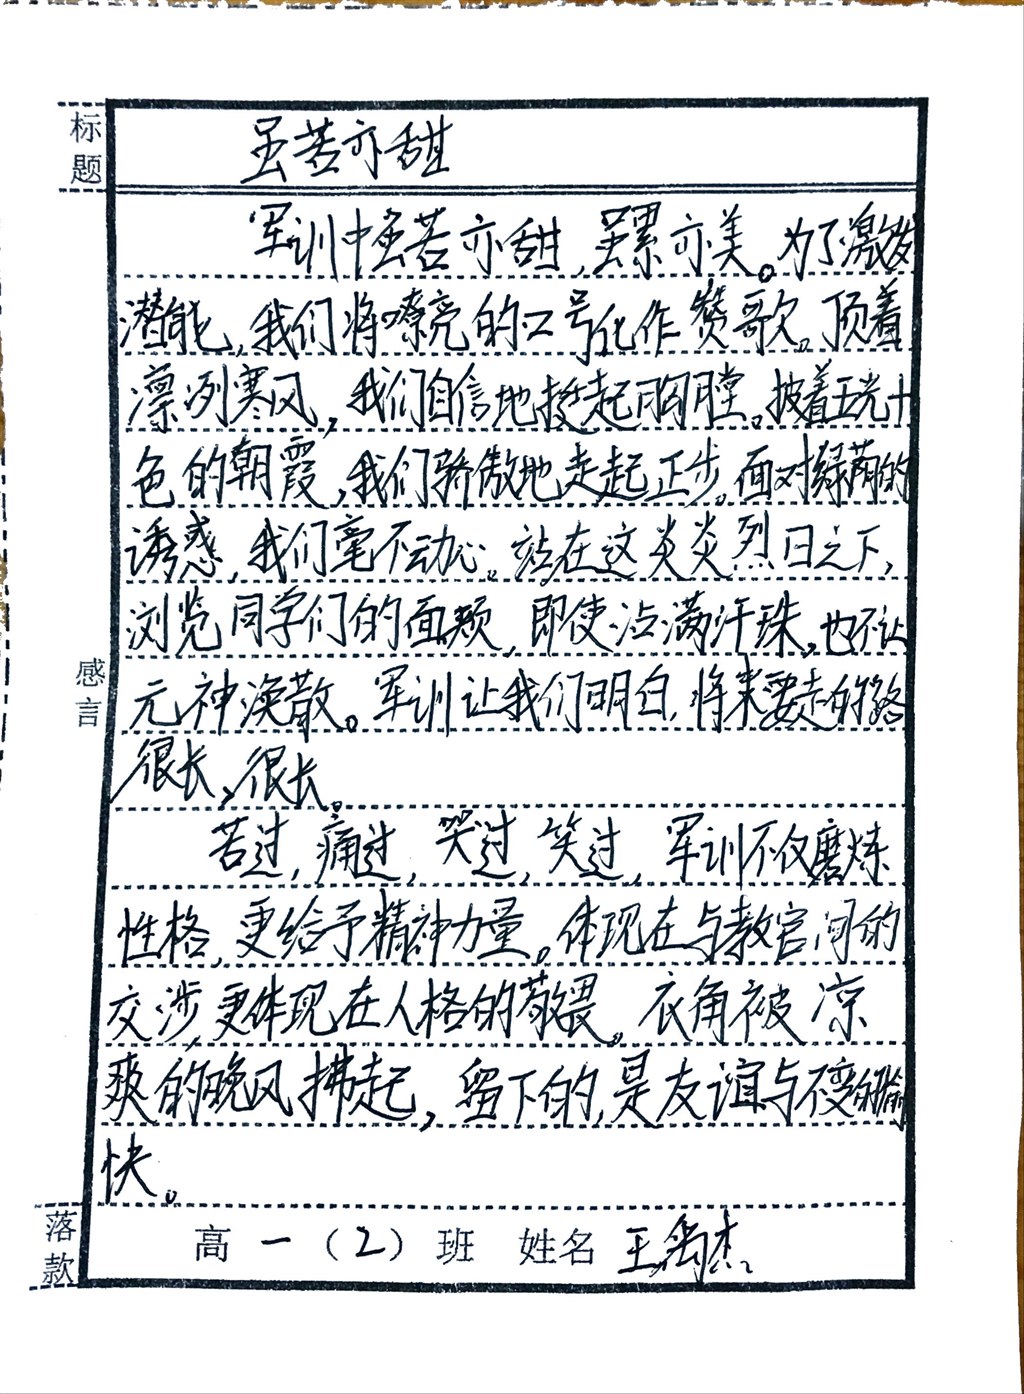 标题
虽苦亦甜
军训中虽苦亦甜，虽累亦美。为了激发
潜能，我们将嘹亮的口号化作赞歌。顶着
凛冽寒风，我们自信地挺起胸膛。披着五光十
色的朝霞，我们骄傲地走起正步。面对绿荫的
诱惑，我们毫不动心。站在这炎炎烈日之下，
浏览同学们的面颊，即使沾满汗珠，也不让
元神涣散。军训让我们明白，将来要走的路
很长，很长。
感言
苦过，痛过，哭过，笑过，军训不仅磨炼
性格，更给予精神力量。体现在与教官间的
交涉，更体现在人格的敬畏。衣角被凉
爽的晚风拂起，留下的，是友谊与不变的愉
快。
落款
高一（2）班 姓名 王禹杰